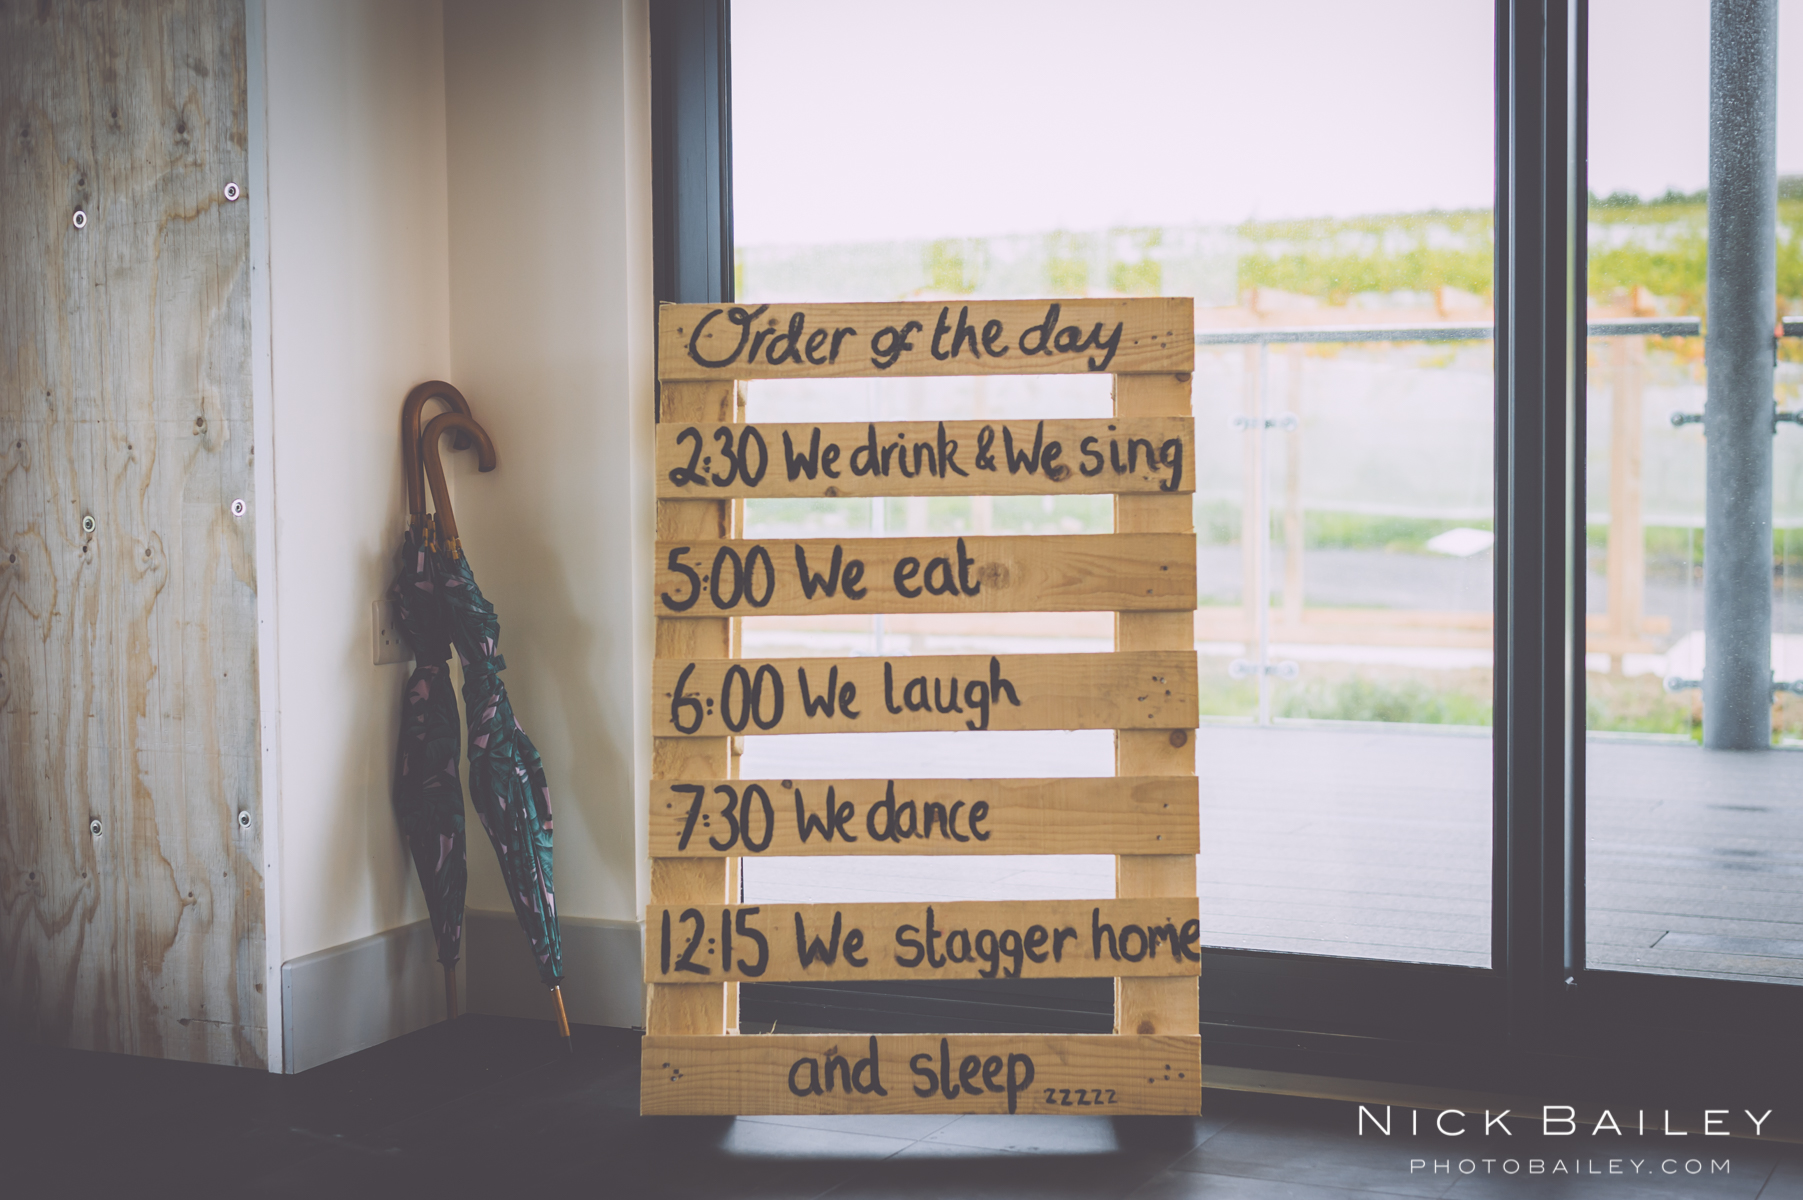 Order of the day
2:30 We drink & We sing
5:00 We eat
6:00 We laugh
7:30 We dance
12:15 We stagger home
and sleep zzzzz
NICK BAILEY
PHOTOBAILEY.COM